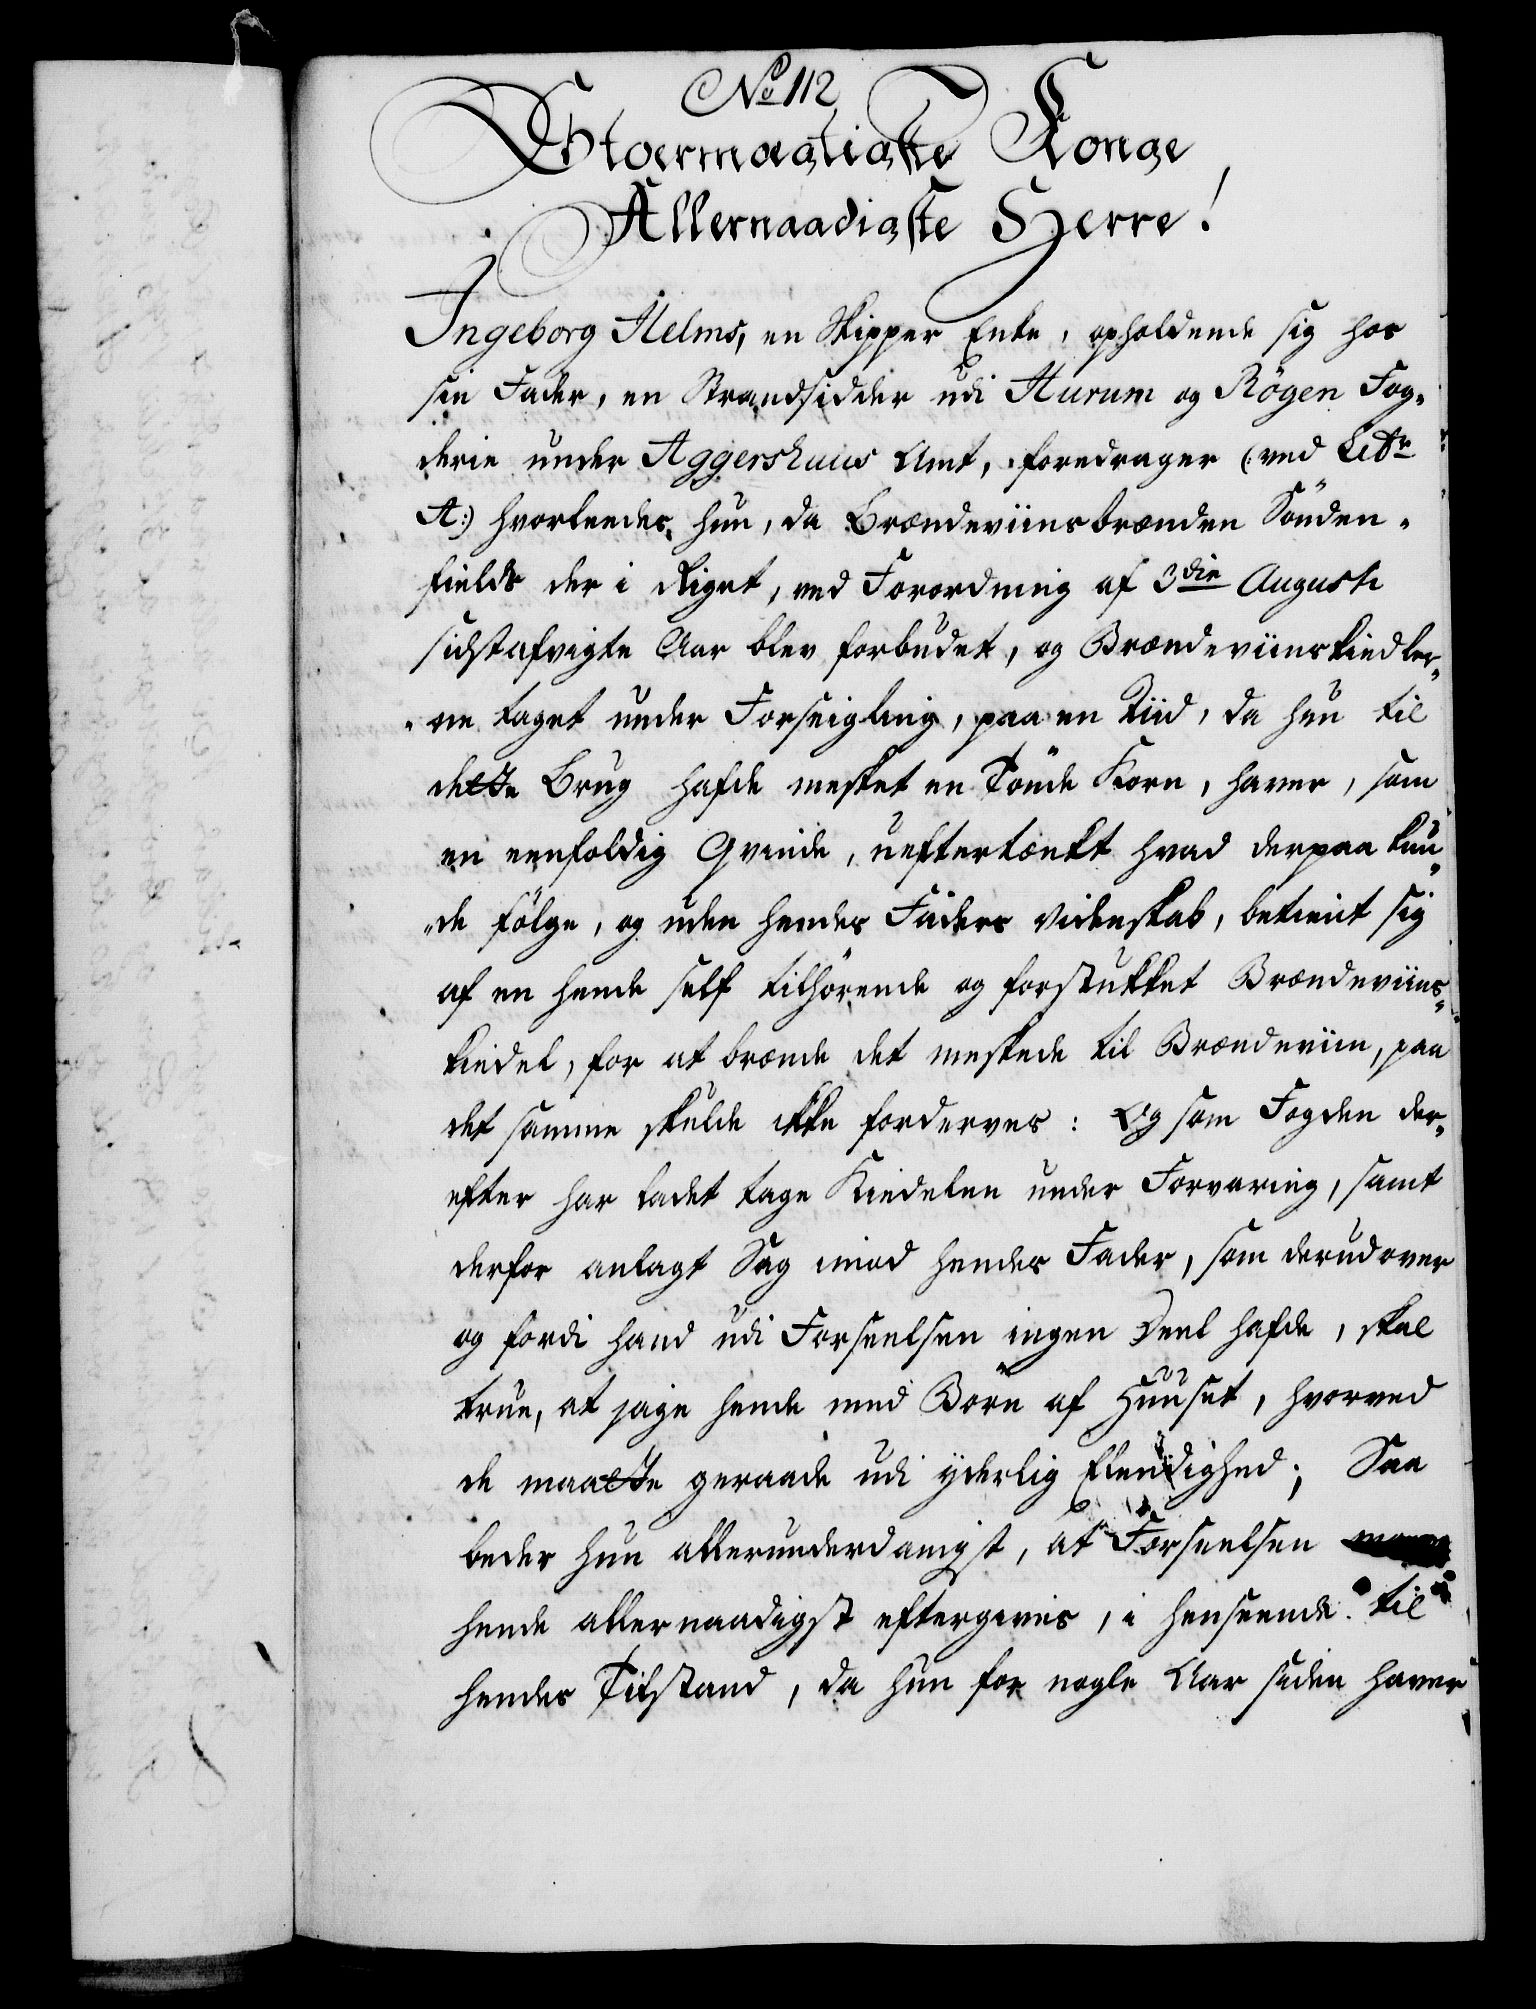 No 112
Stoermægtigste Konge
Allernaadigste Herre!
Ingeborg Helms, en Skipper Enke, opholdende sig hos
sin Fader, en Strandsidder udi Hurum og Rögen Fog-
derie under Aggershuus Amt, foredrager (: ved Littr
A:) hvorledes hun, da Brændeviinsbrænden Sönden-
fields der i Riget, ved Forordning af 3die Augusti
sidstafvigte Aar blev forbudet, og Brændeviinskiedler-
ne taget under Forseigling, paa en Tiid, da hun til
dette Brug hafde mesket en Tönde Korn, haver, som
en eenfoldig Qvinde, ueftertænkt hvad derpaa kun-
de fölge, og uden hendes Faders Videnskab, betient sig
af en hende self tilhörende og forstukket Brændeviins-
kiedel, for at brænde det meskede til Brændeviin, paa
det samme skulde ikke forderves: Og som Fogden der-
efter har ladet tage Kiedelen under Forvaring, samt
derfor anlagt Sag imod hendes Fader, som derudover
og fordi hand udi Forseelsen ingen Deel hafde, skal
true, at jage hende med Börn af Huuset, hvorved
de maatte geraade udi yderlig Elendighed; Saa
beder hun allerunderdanigst, at Forseelsen
hende allernaadigst eftergives, i henseende til
hendes Tilstand, da hun for nogle Aar siden haver